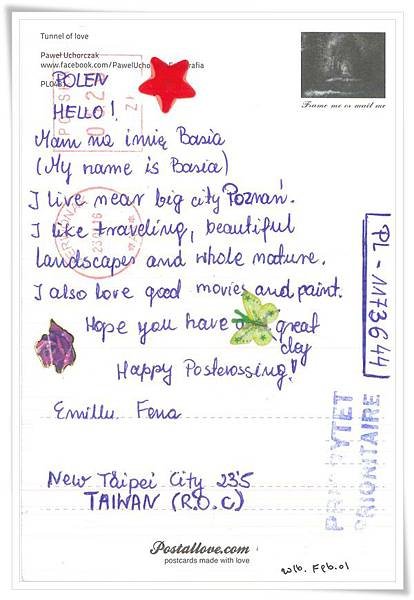 Tunnel of love
Paweł Uchorczak
www.facebook.com/PawelUcho fia
PL0
POLEN
HELLO!
Mam na imię Basia
(My name is Basia)
I live near big city Poznań.
I like traveling, beautiful
landscapes and whole nature.
I also love good movies and paint.
Hope you have a great
day
Happy Postcrossing!
Emilly Fena
New Taipei City 235
TAIWAN (R.O.C)
Frame me or mail me
PL-1173644
PRIORYTET
PRIORITAIRE
Postallove.com
postcards made with love
2016. Feb. 01